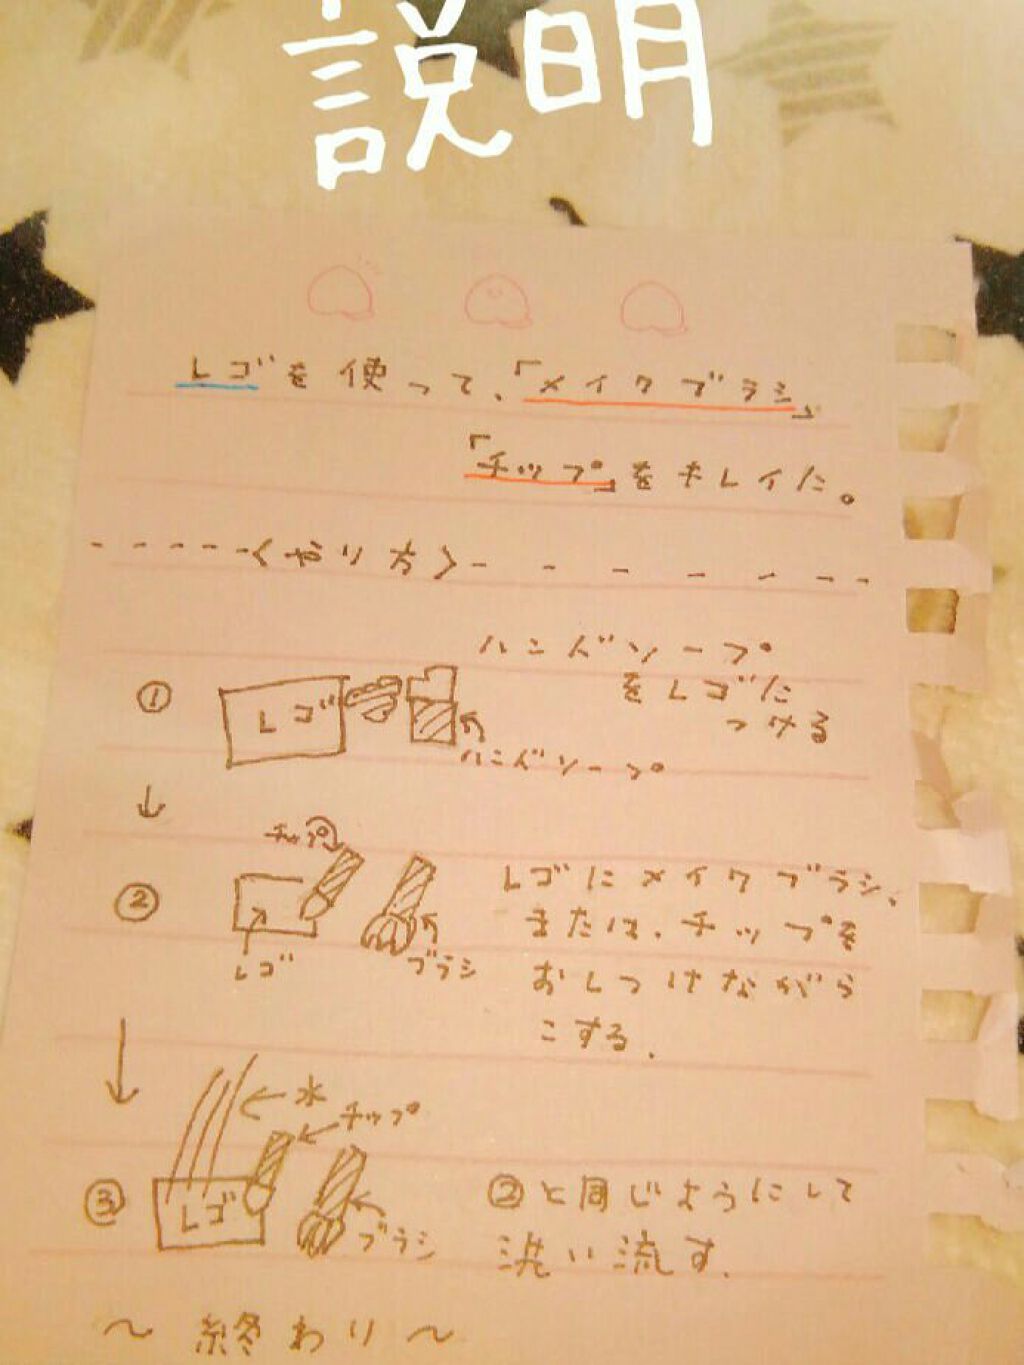 説明
レゴを使って、「メイクブラシ」
「チップ」をキレイに。
-----<やり方>-------
ハンドソープ
をレゴに
つける
① レゴ
ハンドソープ
↓
チップ
② レゴにメイクブラシ、
または、チップを
おしつけながら
こする.
レゴ
ブラシ
↓
水
チップ
③ レゴ
ブラシ
②と同じようにして
洗い流す.
～終わり～